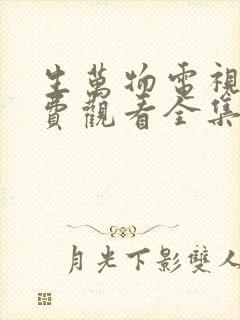 生萬物電視
費觀看全集
月光下影雙人